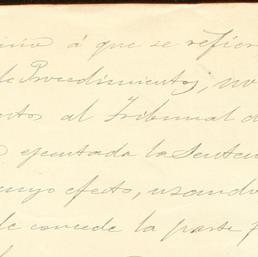 á que se refier
de Procedimientos, no
al Tribunal d
ejecutada la Senten
cuyo efecto, usando
le concede la parte